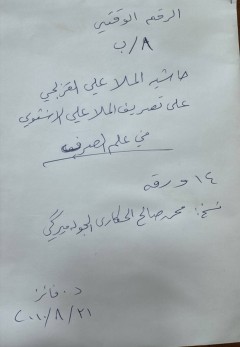 الرقم الوقتي
٨/ب
حاشيه الملا علي القزلجي
على تصريف الملا علي الاشنوي
في علم الصرف
١٤ ورقه
نسخ: محمد صالح الحكاري الجولميركي
د. فائز
٢٠١٠/٨/٢١